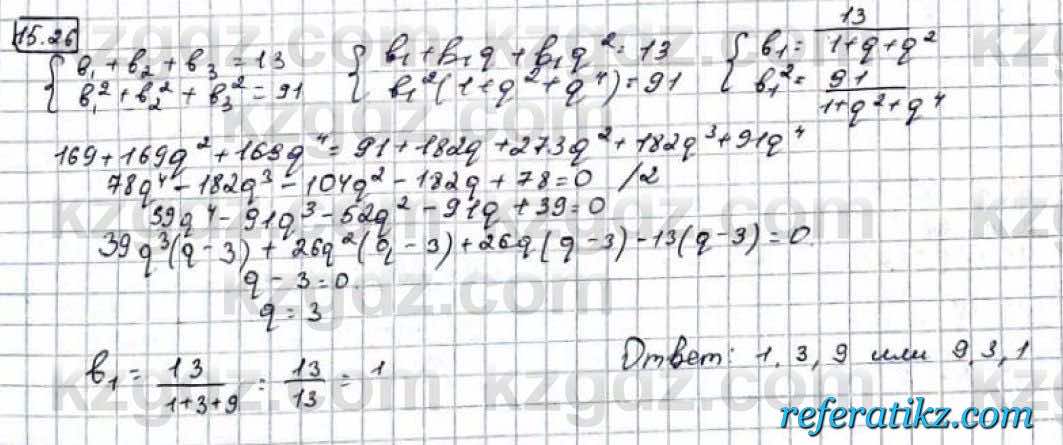 15.26
{ b₁ + b₂ + b₃ = 13
b₁² + b₂² + b₃² = 91
{ b₁ + b₁q + b₁q² = 13
b₁²(1+q²+q⁴) = 91
{ b₁ = 13/(1+q+q²)
b₁² = 91/(1+q²+q⁴)
169+169q²+169q⁴ = 91+182q+273q²+182q³+91q⁴
78q⁴ - 182q³ - 104q² - 182q + 78 = 0 /2
39q⁴ - 91q³ - 52q² - 91q + 39 = 0
39q³(q-3) + 26q²(q-3) + 26q(q-3) - 13(q-3) = 0.
q - 3 = 0.
q = 3
b₁ = 13/(1+3+9) = 13/13 = 1
Ответ: 1, 3, 9 или 9, 3, 1
kzgdz.com
referatikz.com